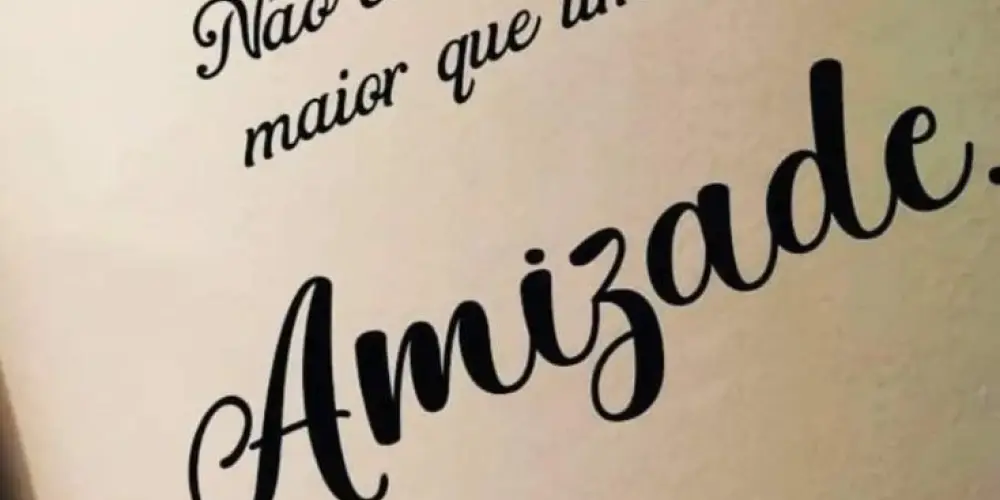 Não
maior que
Amizade.